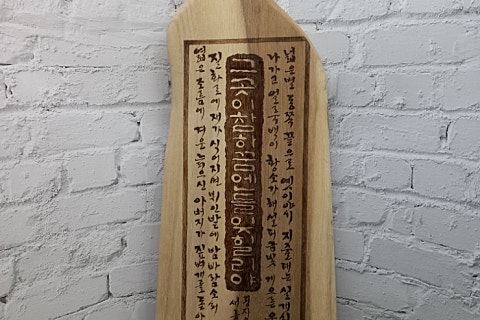 넓은벌 동쪽 끝으로 옛이야기 지줄대는 실개천
나가고 얼룩백이 황소가 해설피 금빛 게으른 우
그곳이참하꿈엔들잊힐리야
정지
질화로에 재가 식어지면 뷔인밭에 밤바람소리
엷은 조름에 겨운 늙으신 아버지가 짚벼개를 돋아